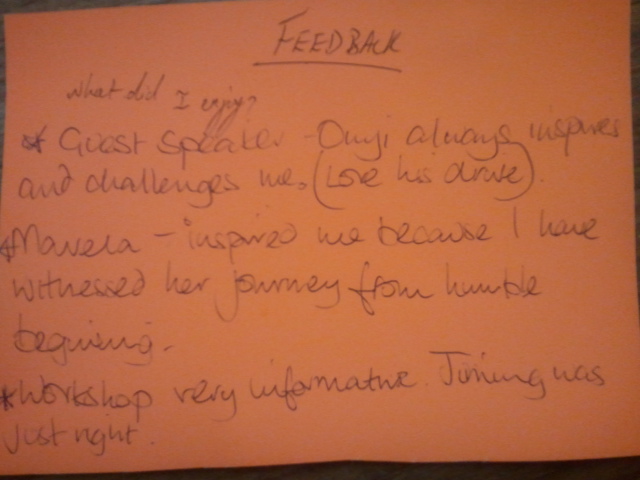 FEEDBACK
What did I enjoy?
* Guest Speaker - Onyi always inspires
and challenges me. (Love his drive).
* Mavela - inspired me because I have
witnessed her journey from humble
begining.
* Workshop very informative. Timing was
Just right.